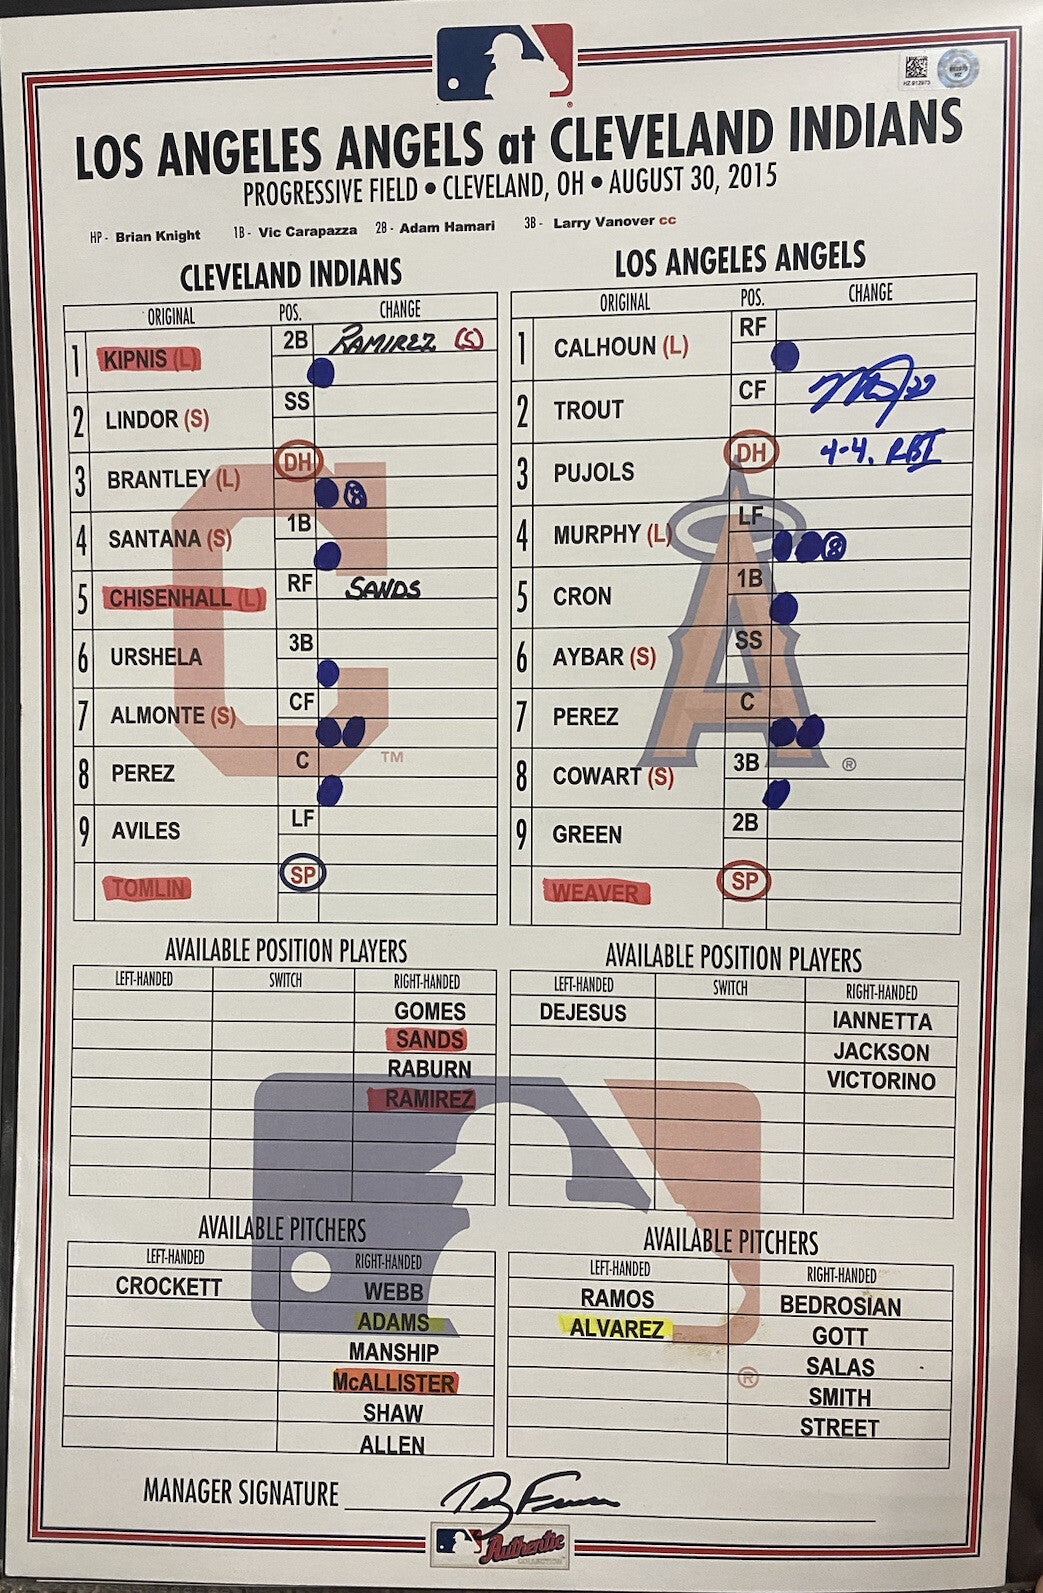 HZ 912973
LOS ANGELES ANGELS at CLEVELAND INDIANS
PROGRESSIVE FIELD • CLEVELAND, OH • AUGUST 30, 2015
HP - Brian Knight 1B - Vic Carapazza 2B - Adam Hamari 3B - Larry Vanover cc
CLEVELAND INDIANS
ORIGINAL POS. CHANGE
1 KIPNIS (L) 2B RAMIREZ (S)
2 LINDOR (S) SS
3 BRANTLEY (L) DH
8
4 SANTANA (S) 1B
5 CHISENHALL (L) RF SANDS
6 URSHELA 3B
7 ALMONTE (S) CF
8 PEREZ C
9 AVILES LF
TOMLIN SP
TM
LOS ANGELES ANGELS
ORIGINAL POS. CHANGE
1 CALHOUN (L) RF
2 TROUT CF 27
3 PUJOLS DH 4-4, RBI
4 MURPHY (L) LF
8
5 CRON 1B
6 AYBAR (S) SS
7 PEREZ C
8 COWART (S) 3B
9 GREEN 2B
WEAVER SP
®
AVAILABLE POSITION PLAYERS
LEFT-HANDED SWITCH RIGHT-HANDED
GOMES
SANDS
RABURN
RAMIREZ
AVAILABLE POSITION PLAYERS
LEFT-HANDED SWITCH RIGHT-HANDED
DEJESUS IANNETTA
JACKSON
VICTORINO
AVAILABLE PITCHERS
LEFT-HANDED RIGHT-HANDED
CROCKETT WEBB
ADAMS
MANSHIP
McALLISTER
SHAW
ALLEN
AVAILABLE PITCHERS
LEFT-HANDED RIGHT-HANDED
RAMOS BEDROSIAN
ALVAREZ GOTT
SALAS
SMITH
STREET
®
MANAGER SIGNATURE
Authentic
COLLECTION